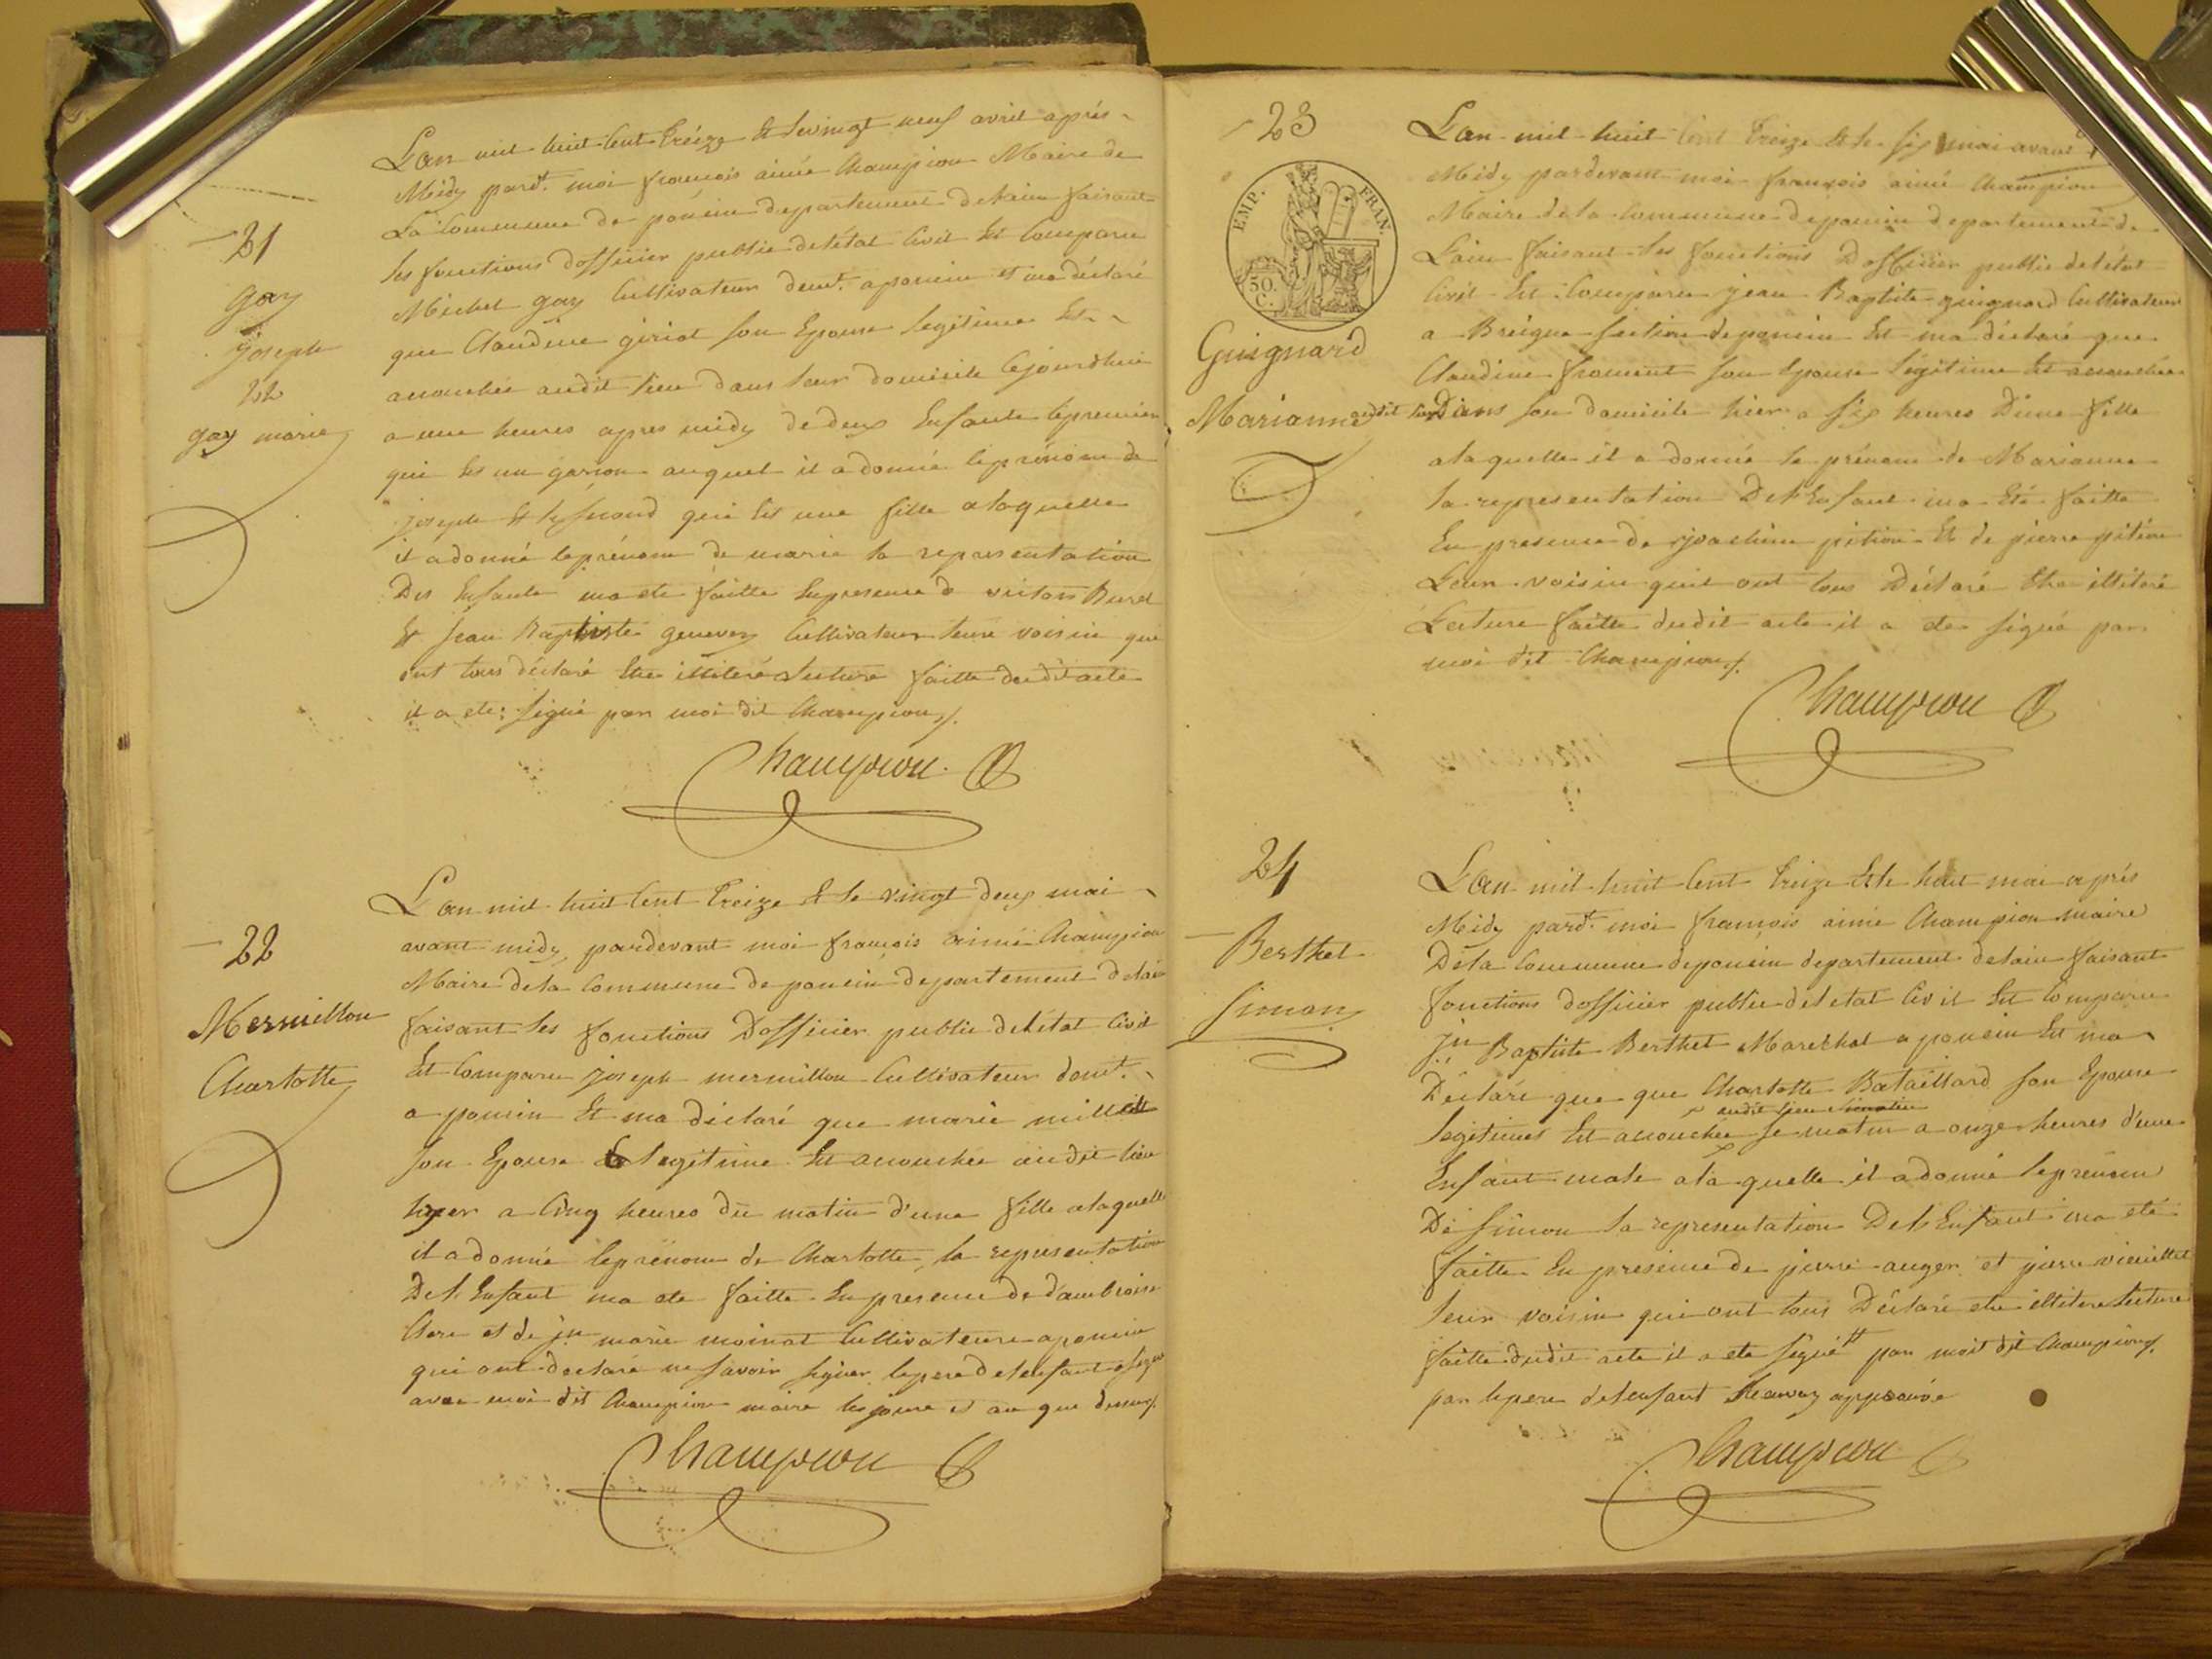 21
gay
joseph
22
gay marie
L'an mil huit Cent treize Et le vingt neuf avril après
Midy pard.t moi françois aimé Champion Maire de
La Commune de poncin departement de Lain faisant
les fonctions dofficier public de l'état Civil Est Comparu
Michel gay Cultivateur demt. a poncin et ma déclaré
que Claudine giriat son Epouse legitime Est
accouchée audit lieu dans leur domicile Cejourdhui
a une heures apres midy de deux Enfants le premier
qui Est un garson auquel il a donné le prénom de
joseph Et le second qui Est une fille a laquelle
il a donné le prénom de marie la representation
Des Enfants ma ete faitte En presence de Buret
Et jean Baptiste genevey Cultivateur leure voisin qui
ont tous déclaré Etre illiteré Lecture faitte dudit acte
il a ete signé par moi dit Champion
Champion
22
Mermillon
Charlotte
L'an mil huit Cent treize Et le vingt deux mai
avant midy pardevant moi françois aimé Champion
Maire de la Commune de poncin departement de lain
faisant les fonctions D'officier public de l'état Civil
Est Comparu joseph mermillon Cultivateur demt.
a poncin Et ma déclaré que marie millet
son Epouse legitime Est accouchée audit lieu
hyer a Cinq heures du matin d'une fille a laquelle
il a donné le prénom de Charlotte, la representation
De l'Enfant ma ete faitte En presence de d'ambroise
et de jn marie moinat Cultivateure a poncin
qui ont declaré ne savoir signer le pere de l'enfant a signé
avec moi dit Champion maire les jours et an que dessus
Champion
23
EMP. FRAN.
50. C.
Guignard
Marianne
L'an mil huit Cent treize Et le six mai avant
Midy pardevant moi françois aimé Champion
Maire de la Commune de poncin departement de
Lain faisant les fonctions D'officier public de l'état
Civil Est Comparu jean Baptiste guignard Cultivateur
a Breigne section de poncin Et ma déclaré que
Claudine froment son Epouse légitime Est accouchée
audit lieu Dans son domicile hier a six heures D'une fille
a laquelle il a donné le prénom de Marianne
la representation De l'Enfant ma Eté faitte
En presence de joachim pition Et de pierre pition
Leur voisin quil ont tous Déclaré Etre illiteré
Lecture faitte dudit acte il a ete signé par
moi dit Champion
Champion
24
Berthet
Simon
L'an mil huit Cent treize Et le huit mai après
Midy pard.t moi françois aimé Champion maire
De la Commune de poncin departement de lain faisant
fonctions d'officier public de l'etat Civil Est Comparu
jn Baptiste Berthet Maréchal a poncin Et ma
Déclaré que que Charlotte Bataillard son Epouse
audit lieu
legitimes Est accouchée le matin a onze heures d'une
Enfant male a la quelle il a donné le prénom
De Simon la representation De l'Enfant ma eté
faitte En presence de pierre auger et pierre
leur voisin qui ont tous Déclaré etre illiteré Lecture
faitte dudit acte il a ete signé par moi dit Champion
par le pere de l'enfant approuvé
Champion